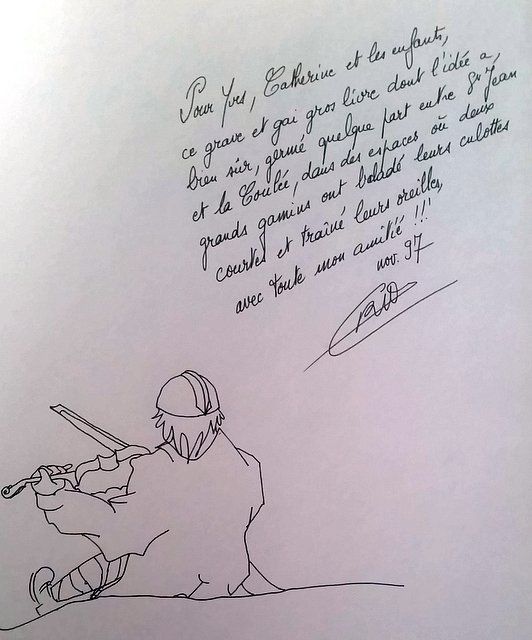 Pour Yves, Catherine et les enfants,
ce grave et gai gros livre dont l'idée a,
bien sûr, germé quelque part entre St Jean
et la Coulée, dans des espaces où deux
grands gamins ont baladé leurs culottes
courtes et traîné leurs oreilles,
avec toute mon amitié !!!
nov. 97